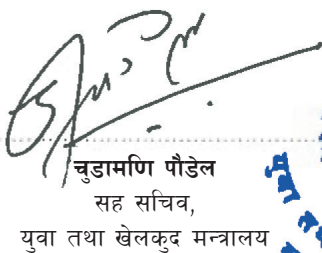 चुडामणि पौडेल
सह सचिव,
युवा तथा खेलकुद मन्त्रालय